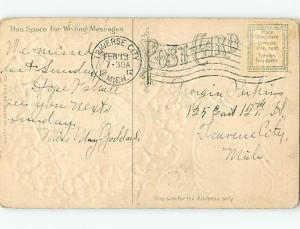 This Space For Writing Messages
TRAVERSE CITY
FEB 13
7-30A
1912
MICH.
POST CARD
Place
Stamp here
Domestic
One cent
Foreign
Two cents
We missed
you
last Sunday
Hope I shall
see you next
Sunday
Miss May Goddard
Georgia Perkins
125 East 12th St
Traverse City
Mich
This side for the Address only